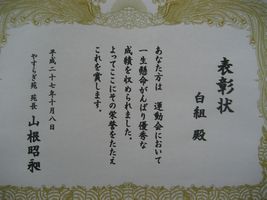 表彰状
白組 殿
あなた方は 運動会において
一生懸命がんばり優秀な
成績を収められました。
よってここにその栄誉をたたえ
これを賞します。
平成二十七年十月八日
やすらぎ苑 苑長
山根昭昶